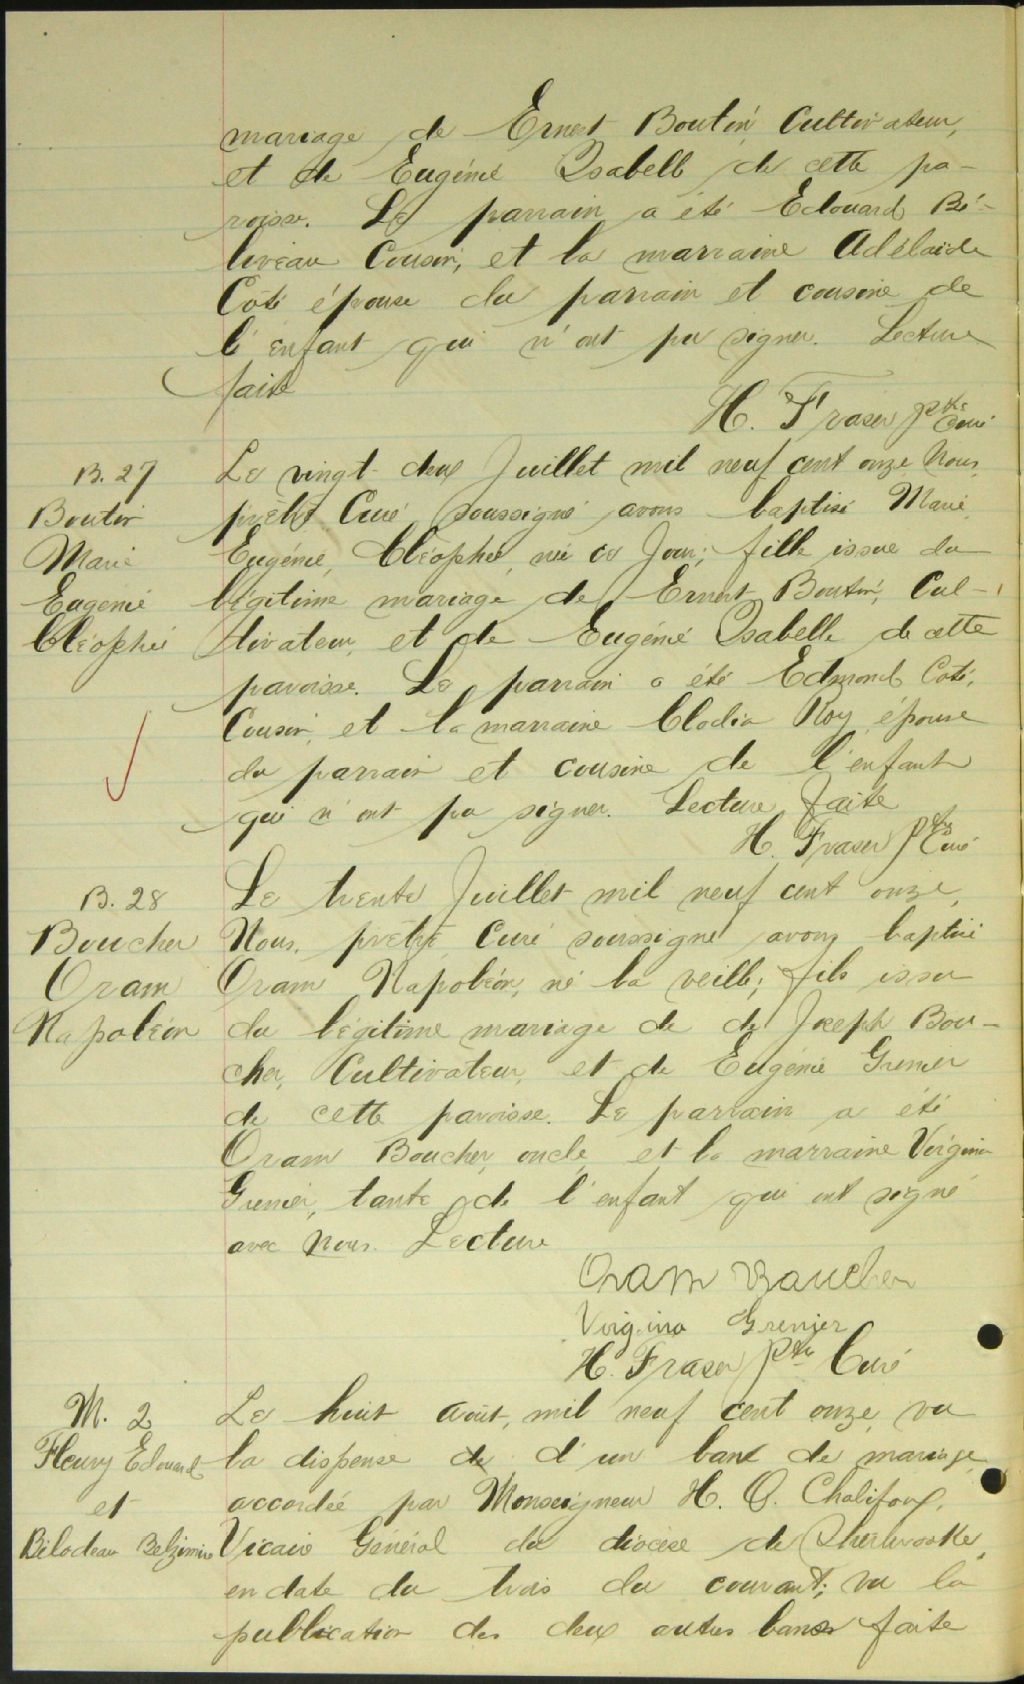 mariage de Ernest Boutin Cultivateur,
et de Eugénie Isabell de cette pa-
roisse. Le parrain a été Edouard Bé-
liveau Cousin, et la marraine Adélaïde
Coté épouse du parrain et cousine de
l'enfant qui n'ont pu signer. Lecture
faite
H. Fraser Ptre Curé
B. 27
Boutin
Marie
Eugenie
Cléophée
Le vingt deux Juillet mil neuf cent onze Nous
prêtre Curé soussigné avons baptisé Marie
Eugénie, Cléophée, née ce Jour; fille issue du
légitime mariage de Ernest Boutin, Cul-
tivateur, et de Eugénie Isabelle de cette
paroisse. Le parrain a été Edmond Coté,
Cousin, et la marraine Clodia Roy épouse
du parrain et cousine de l'enfant
qui n'ont pu signer. Lecture faite
H. Fraser Ptre Curé
B. 28
Boucher
Oram
Napoléon
Le trente Juillet mil neuf cent onze,
Nous, prêtre Curé soussigné avons baptisé
Oram Napoléon, né la veille; fils issu
du légitime mariage de de Joseph Bou-
cher, Cultivateur, et de Eugénie Grenier
de cette paroisse. Le parrain a été
Oram Boucher, oncle, et la marraine Virginia
Grenier, tante de l'enfant qui ont signé
avec Nous. Lecture
Oram Boucher
Virginia Grenier
H. Fraser Ptre Curé
M. 2
Fleury Edouard
et
Bilodeau Belzimire
Le huit Août, mil neuf cent onze, vu
la dispense de d'un banc de mariage
accordée par Monseigneur H. O. Chalifoux,
Vicaire Général du diocèse de Sherbrooke,
en date du trois du courant; vu la
publication des deux autres bancs faite